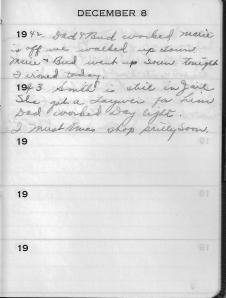 DECEMBER 8
1942 Dad & Bud worked Marie
is off we walked up town
Marie & Bud went up town tonight
I ironed today.
1943 Smith is still in Jail
She got a Lawyer for him
Dad worked Day light.
I must Xmas shop pretty soon.
19
19
19